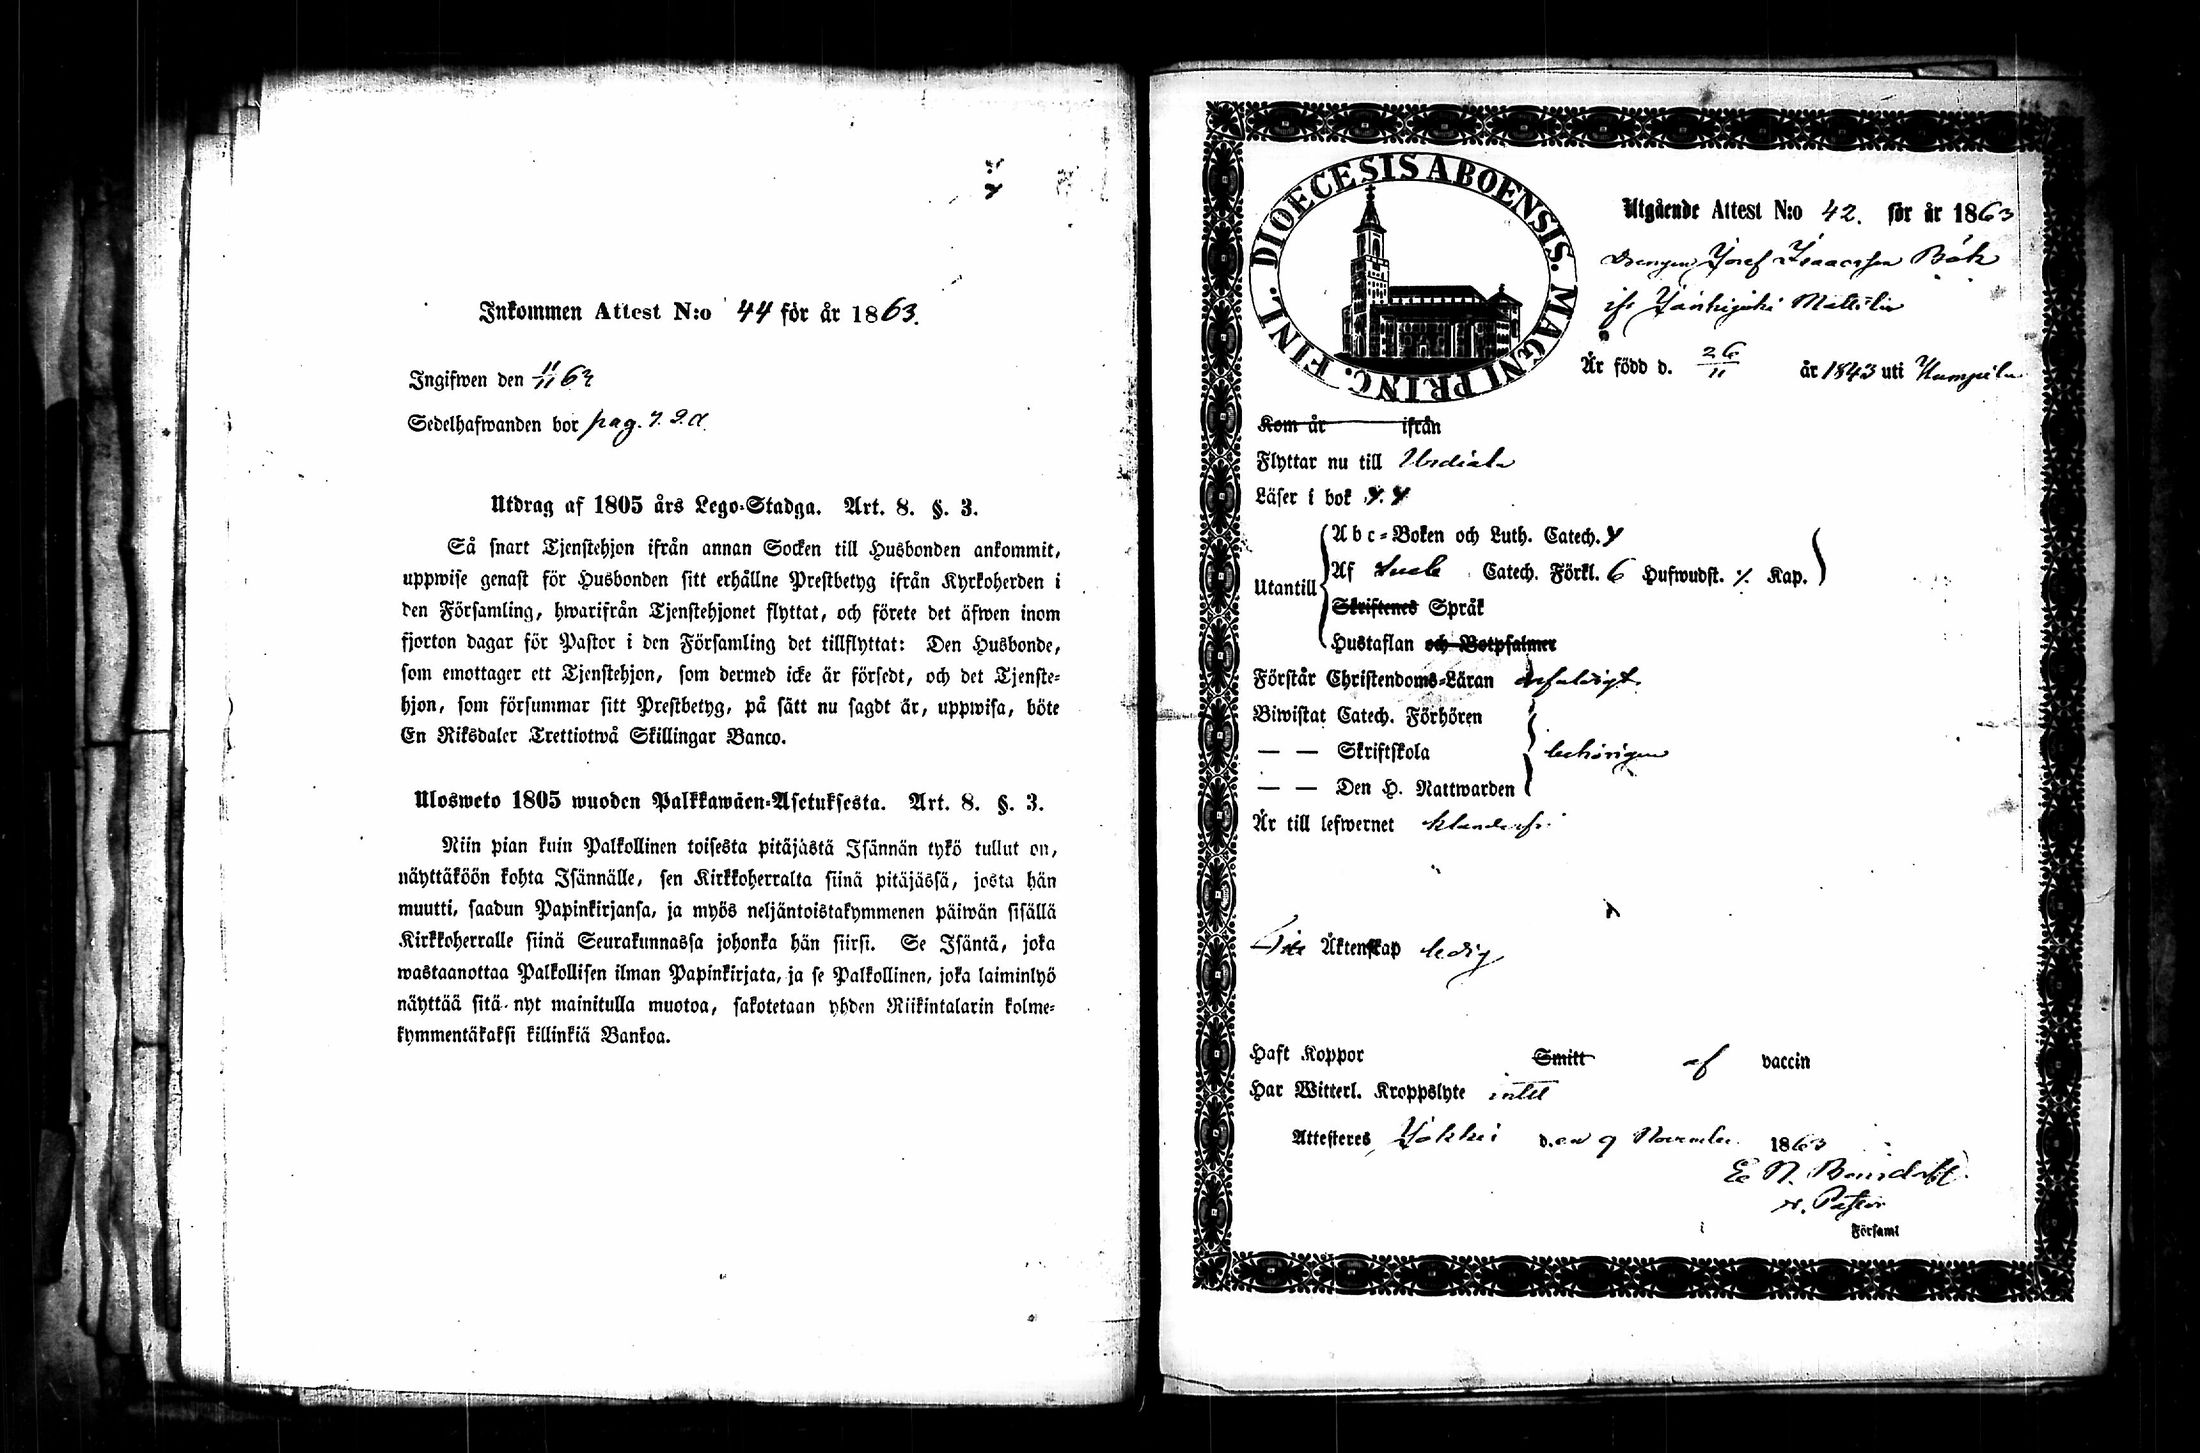 Inkommen Attest N:o 44 för år 1863.
Ingifwen den 11/11 63
Sedelhafwanden bor pag.
Utdrag af 1805 års Lego-Stadga. Art. 8. §. 3.
Så snart Tjenstehjon ifrån annan Socken till Husbonden ankommit,
uppwise genast för Husbonden sitt erhållne Prestbetyg ifrån Kyrkoherden i
den Församling, hwarifrån Tjenstehjonet flyttat, och förete det äfwen inom
fjorton dagar för Pastor i den Församling det tillflyttat: Den Husbonde,
som emottager ett Tjenstehjon, som dermed icke är försedt, och det Tjenste-
hjon, som försummar sitt Prestbetyg, på sätt nu sagdt är, uppwisa, böte
En Riksdaler Trettiotwå Skillingar Banco.
Ulosweto 1805 wuoden Palkkawäen-Asetuksesta. Art. 8. §. 3.
Niin pian kuin Palkollinen toisesta pitäjästä Isännän tykö tullut on,
näyttäköön kohta Isännälle, sen Kirkkoherralta siinä pitäjässä, josta hän
muutti, saadun Papinkirjansa, ja myös neljäntoistakymmenen päiwän sisällä
Kirkkoherralle siinä Seurakunnassa johonka hän siirsi. Se Isäntä, joka
wastaanottaa Palkollisen ilman Papinkirjata, ja se Palkollinen, joka laiminlyö
näyttää sitä nyt mainitulla muotoa, sakotetaan yhden Riikintalarin kolme-
kymmentäkaksi killinkiä Bankoa.
DIOECESIS ABOENSIS. MAGNI PRINC. FINL.
Utgående Attest N:o 42. för år 1863
Drengen Josef Isaacsson Bök
Mattila
Är född d. 26/11 år 1843 uti Humpila
Kom år ifrån
Flyttar nu till Urdiala
Läser i bok
Abc-Boken och Luth. Catech.
Utantill
Af Catech. Förkl. 6 Hufwudst. Kap.
Skriftenes Språk
Hustaflan och Botpsalmer
Förstår Christendoms-Läran enfaldigt
Biwistat Catech. Förhören
— — Skriftskola behörigen
— — Den H. Nattwarden
Är till lefwernet klanderfri
Till Äktenskap ledig
Haft Koppor Smitt af vaccin
Har Witterl. Kroppslyte intet
Attesteres, Jokkis den 9 November 1863
E. N.
v. Pastor
Församl